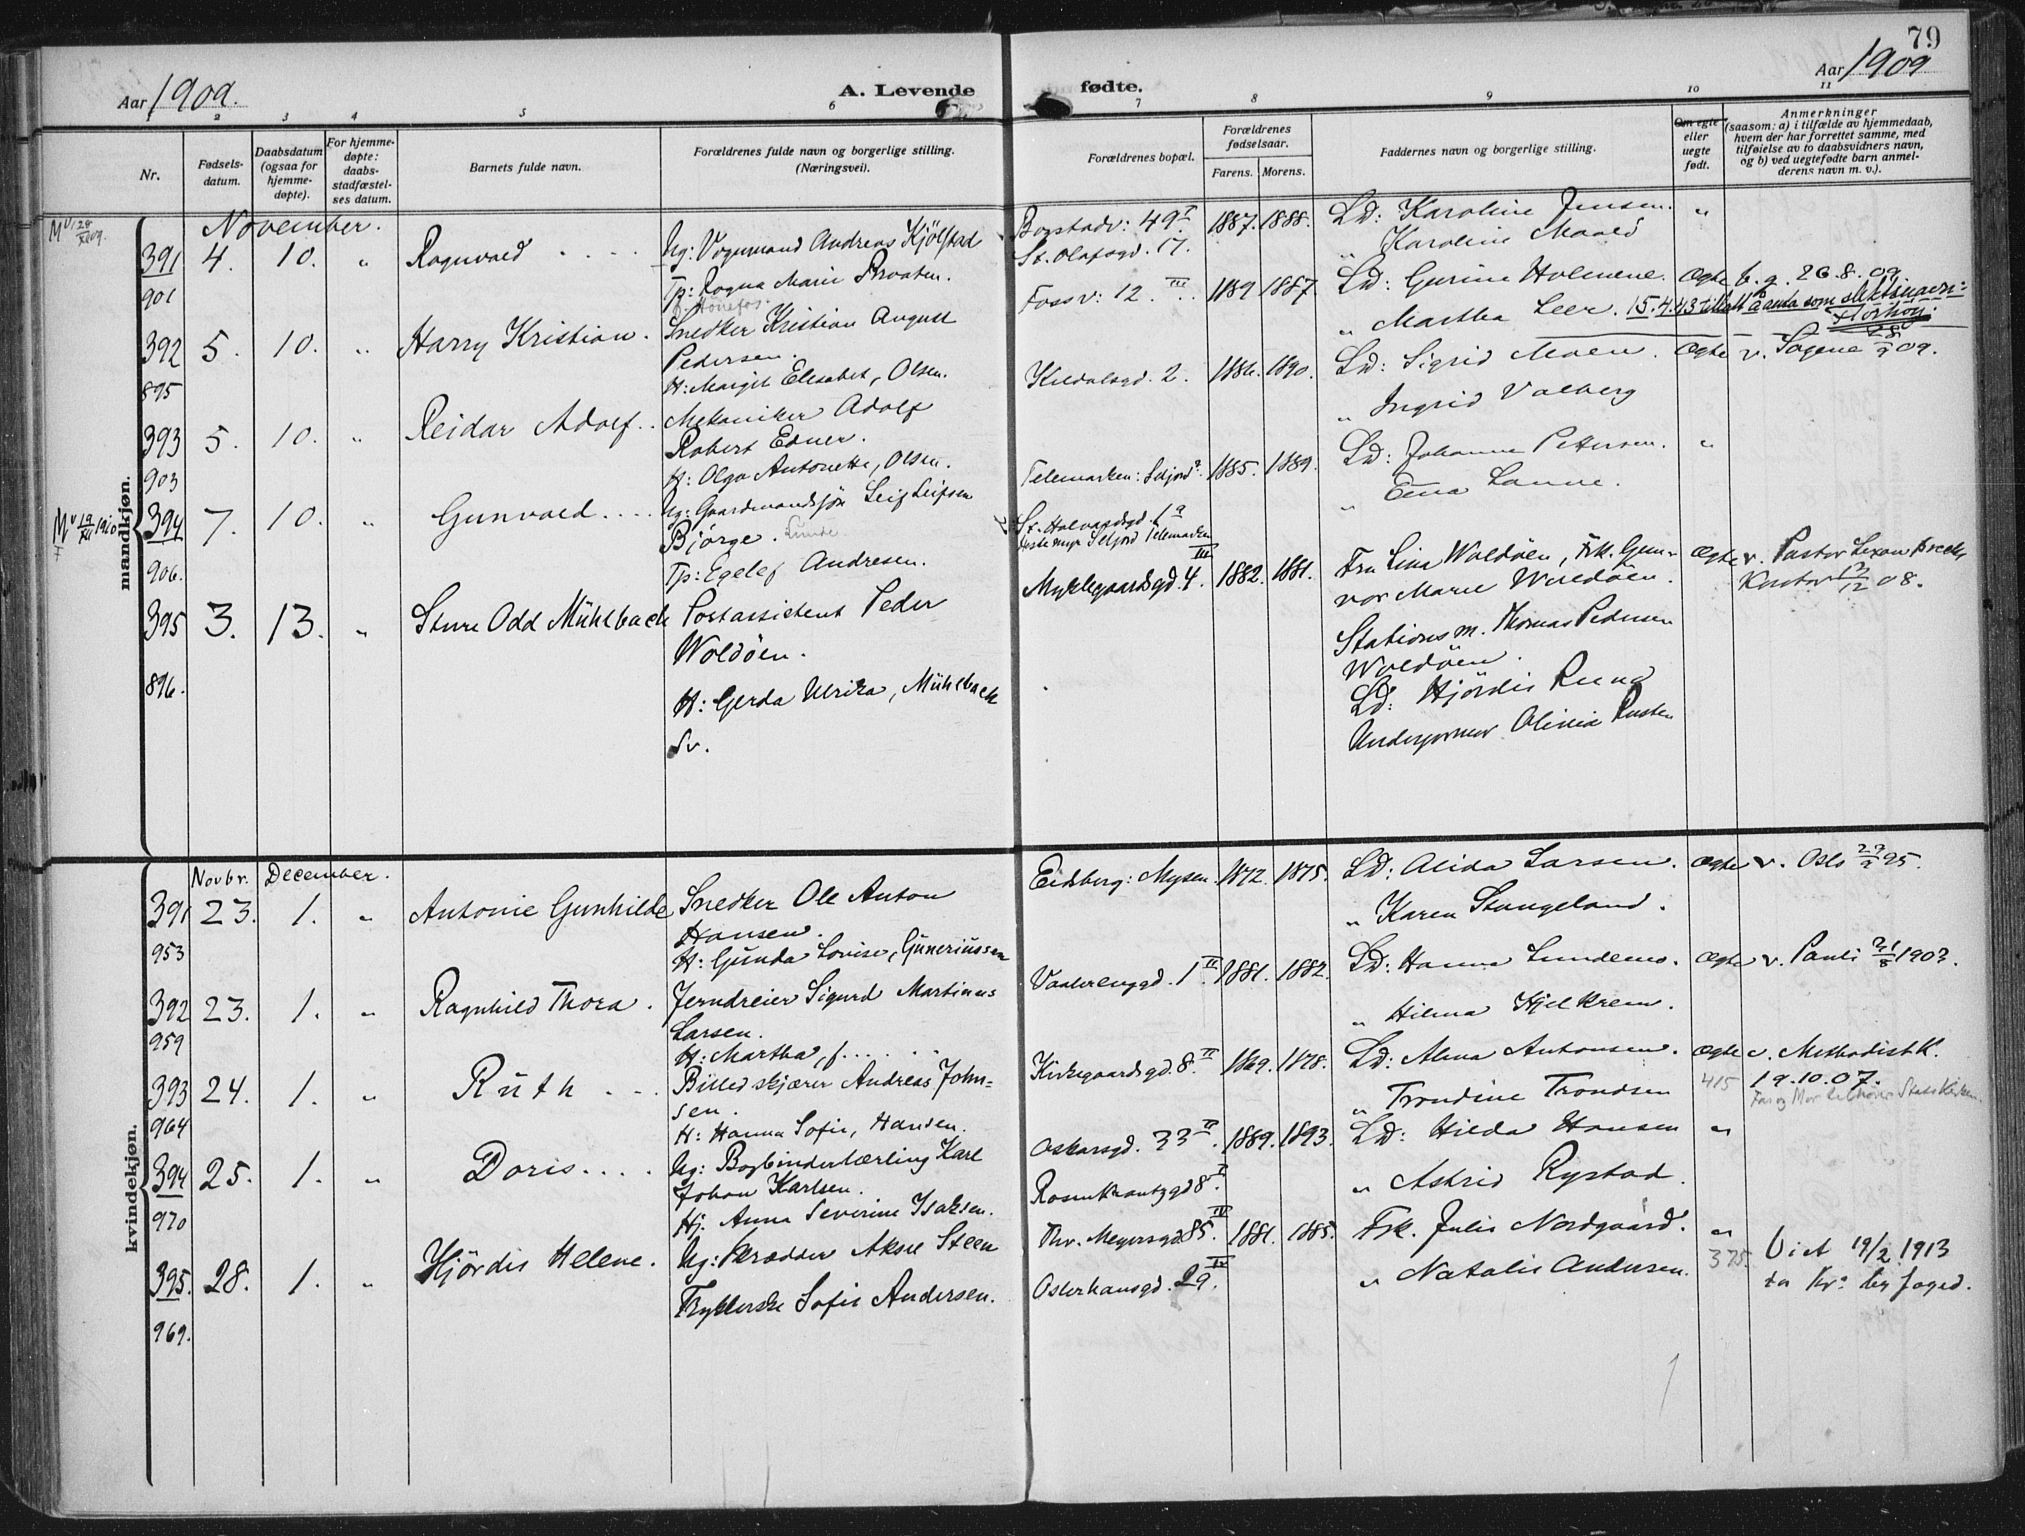 79
Aar 1909.
A. Levende fødte.
Aar 1909
1 2 3 4 5 6 7 8 9 10 11
Nr.
Fødsels-
datum.
Daabsdatum
(ogsaa for
hjemme-
døpte).
For hjemme-
døpte:
daabs-
stadfæstel-
ses datum.
Barnets fulde navn.
Forældrenes fulde navn og borgerlige stilling.
(Næringsvei).
Forældrenes bopæl.
Forældrenes
fødselsaar.
Farens. Morens.
Faddernes navn og borgerlige stilling.
Om egte
eller
uegte
født.
Anmerkninger
(saasom: a) i tilfælde av hjemmedaab,
hvem der har forrettet samme, med
tilføielse av to daabsvidners navn,
og b) ved uegtefødte barn anmel-
derens navn m. v.).
mandkjøn.
November.
391 4. 10. " Ragnvald
901
Ug: Vognmand Andreas Kjölstad
Tp: Ragna Marie Brvaten.
f. Hönefos.
Bogstadv: 49 I 1887. 1888.
St. Olafsgd. 17.
Ld: Karoline Jensen.
" Karoline Maald
"
392 5. 10. " Harry Kristian.
895
Snedker Kristian August
Pedersen.
H: Margit Elisabet, Olsen.
Fossv: 12. III 1889 1887
Ld: Gurine Holmene.
" Martha Leer.
Ægte b. g. 26.8.09.
15.4.43 tillatt å anta som slektsnavn:
393 5. 10. " Reidar Adolf.
903
Mekaniker Adolf
Robert Edner.
H: Olga Antonette, Olsen.
Kildalsgd. 2. 1886. 1890.
Ld: Sigrid Moen.
" Ingrid Valberg
Ægte v. Sagene 28/9 09.
394 7. 10. " Gunvald
906.
Ug: Gaardmandssøn Leif Leifsen
Björge. Lunde
Tp: Egelef Andresen.
Telemarken: Seljord 1885. 1889.
St. Halvardsgd. 1 a
Seljord Telemarken
Ld: Johanne Pettersen.
" Erna Lanne.
"
395 3. 13. " Sture Odd Mühlbach
896.
Postassistent Peder
Woldöen.
H: Gerda Ulrika, Mühlbach
Sv.
Myklegaardsgd. 4. III 1882. 1881.
Fru Lina Woldöen, Frk. Gun-
vor Marie Woldöen.
Stationsm. Thomas Pedersen
Woldöen.
Ld: Hjördis Ruud
Ægte v. Pastor
Kastor 13/12 08.
kvindekjøn.
Novbr. December.
391 23. 1. " Antonie Gunhilde
953
Snedker Ole Anton
Hansen.
H: Gunda Lovise, Guneriussen
Eidsberg: Mysen. 1872. 1875.
Ld: Alida Larsen.
" Karen Stangeland.
Ægte v. Oslo 29/9 95.
392 23. 1. " Ragnhild Thora.
959
Jerndreier Sigurd Martinus
Larsen.
H: Martha, f.....
Vaalerenggd. 1 II 1881. 1882.
Ld: Hanna Lundemo.
" Hilma Hjelkrem.
Ægte v. Pauli 31/8 1902.
393 24. 1. " Ruth
964
Billedskjærer Andreas John-
sen.
H: Hanna Sofie, Hansen.
Kirkegaardsgd. 8. II 1869. 1878.
Ld: Alma Antonsen.
" Trondine Trondsen
Ægte v. Methodistk.
415 19.10.07.
Far og Mor tilhører Statskirken.
394 25. 1. " Doris
970
Ug: Bogbinderlærling Karl
Johan Karlsen.
Hj. Anna Severine Isaksen.
Oskarsgd. 33 II. 1889. 1893.
Rosenkrantzgd 8 I.
Ld: Hilda Hansen
" Astrid Rystad.
"
395. 28. 1. " Hjördis Helene.
969.
Ug: Skrædder Aksel Steen
Sypikerske Sofie Andersen.
Thv. Meyersgd. 85. IV 1881. 1885.
Osterhausgd. 29. IV
Frk. Julie Nordgaard.
" Natalie Andersen.
"
375. Vist 19/2 1913
til Kr.a byfoged.